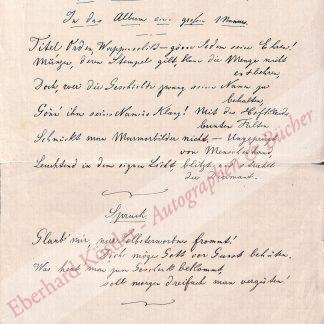 In das Album eines großen Mannes
Titel Orden Wappenschild – gönne Jedem seine Ehren!
Münze, deren Stempel gilt kann die Menge nicht
entbehren,
Doch wen die Geschichte zwang seinen Namen zu
behalten,
Gönn' ihm seines Namens Klang! Mit des Hofkleids
bunten Falten
Schmückt man Marmorbilder nicht. –
von Menschenhand,
Leuchtend in dem eignen Licht, blitzt und strahlt
der Diamant.
Spruch.
Glaub' mir, nur Selbsterworbnes frommt!
Dich möge Gott vor Gunst behüten.
Was heut man zum Geschenk bekommt,
soll morgen dreifach man vergüten!
Eberhard Köstler - Autographen & Bücher